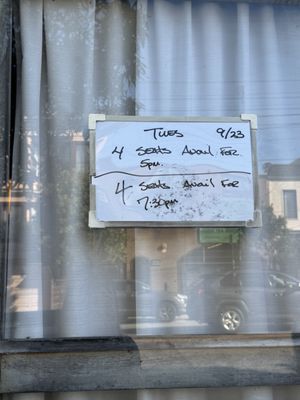 TUES 9/23
4 Seats Avail. For
5pm.
4 Seats Avail For
7:30pm